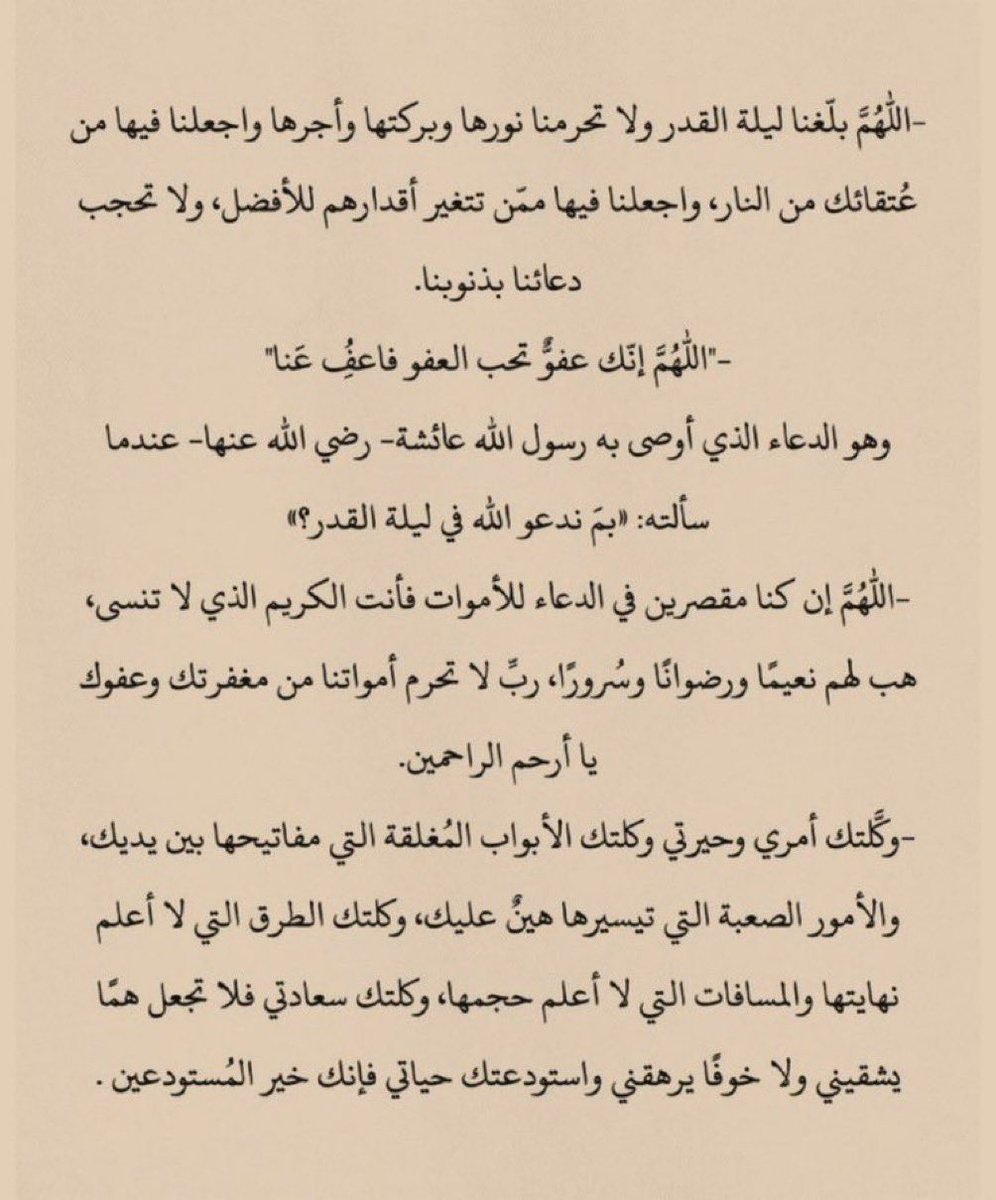 -اللّٰهُمَّ بلّغنا ليلة القدر ولا تحرمنا نورها وبركتها وأجرها واجعلنا فيها من
عُتقائك من النار، واجعلنا فيها ممّن تتغير أقدارهم للأفضل، ولا تحجب
دعائنا بذنوبنا.
-"اللّٰهُمَّ إنّك عفوٌّ تحب العفو فاعفُِ عَنا"
وهو الدعاء الذي أوصى به رسول الله عائشة- رضي الله عنها- عندما
سألته: «بمَ ندعو الله في ليلة القدر؟»
-اللّٰهُمَّ إن كنا مقصرين في الدعاء للأموات فأنت الكريم الذي لا تنسى،
هب لهم نعيمًا ورضوانًا وسُرورًا، ربِّ لا تحرم أمواتنا من مغفرتك وعفوك
يا أرحم الراحمين.
-وكَّلتك أمري وحيرتي وكلتك الأبواب المُغلقة التي مفاتيحها بين يديك،
والأمور الصعبة التي تيسيرها هينٌ عليك، وكلتك الطرق التي لا أعلم
نهايتها والمسافات التي لا أعلم حجمها، وكلتك سعادتي فلا تجعل همًا
يشقيني ولا خوفًا يرهقني واستودعتك حياتي فإنك خير المُستودعين .